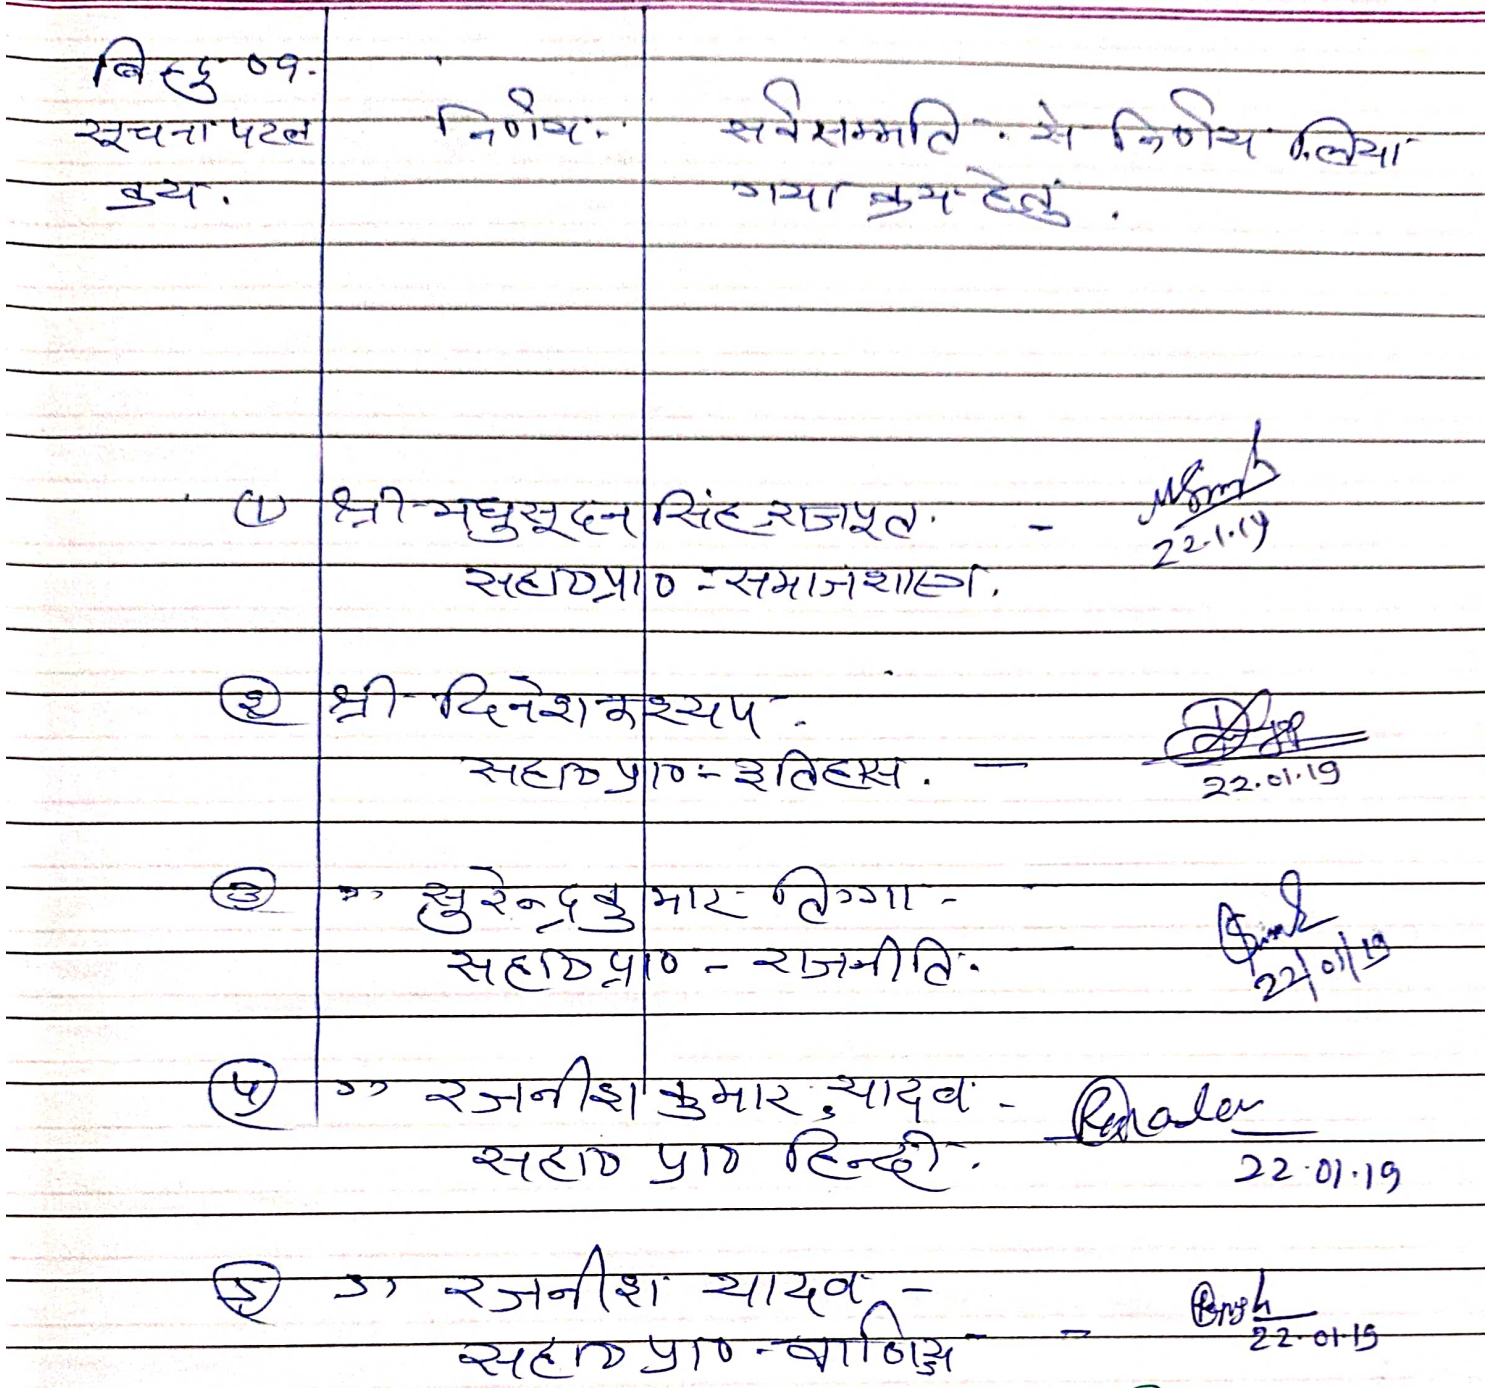 बिन्दु 09.
सूचना पटल निर्णय. सर्वसम्मति से निर्णय लिया
क्रय. गया क्रय हेतु.
① श्री मधुसूदन सिंह राजपूत. -
22.1.19
सहा० प्रा० - समाजशास्त्र.
② श्री दिनेश कश्यप.
सहा० प्रा० - इतिहास. -
22.01.19
③ " सुरेन्द्र कुमार तिग्गा -
सहा० प्रा० - राजनीति.
22/01/19
④ " रजनीश कुमार यादव -
सहा० प्रा० हिन्दी.
22.01.19
⑤ " रजनीश यादव -
22.01.19
सहा० प्रा० - -